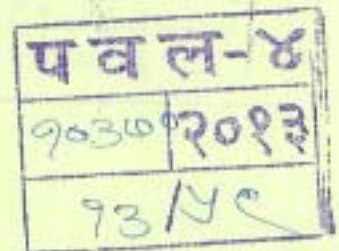 पवल-४
१०३७१ २०१३
१३/५९